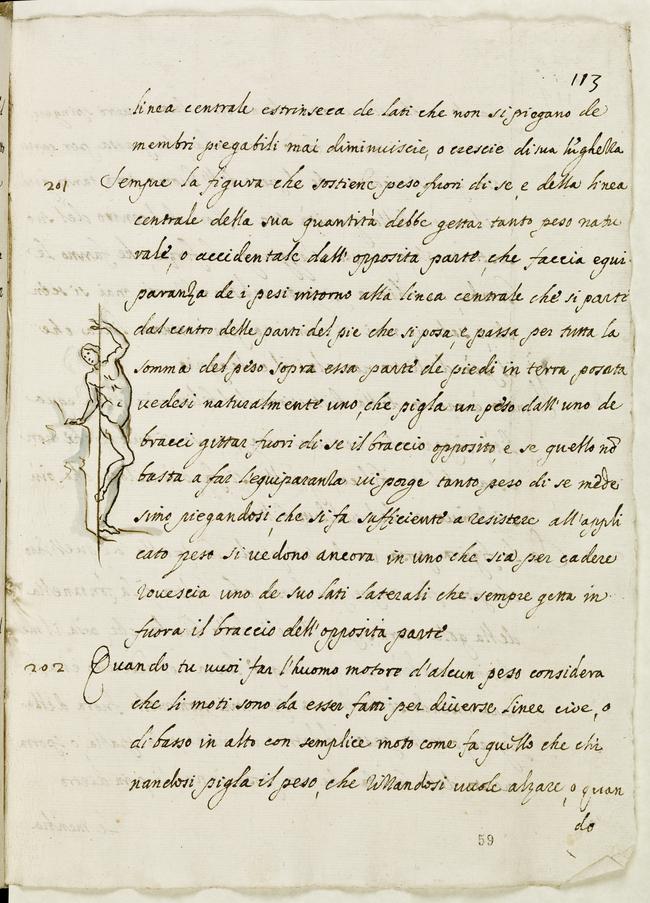 113
linea centrale estrinseca de lati che non si piegano de
membri piegabili mai diminuiscie, o crescie di sua lũghezza
201 Sempre la figura che sostiene peso fuori di se, e della linea
centrale della sua quantità debbe gettar tanto peso natu
rale, o accidentale dall' opposita parte, che faccia equi
paranza de i pesi intorno alla linea centrale che si parte
dal centro delle parti del pie che si posa, e passa per tutta la
somma del peso sopra essa parte de piedi in terra posata
vedesi naturalmente uno, che pigla un peso dall' uno de
bracci gittar fuori di se il braccio opposito, e se quello nõ
basta a far l'equiparanza vi porge tanto peso di se mede
simo piegandosi, che si fa sufficiente a resistere all' appli
cato peso si vedono ancora in uno che sia per cadere
rovescia uno de suo lati laterali che sempre getta in
fuora il braccio dell' opposita parte
202 Quando tu vuoi far l'huomo motore d'alcun peso considera
che li moti sono da esser fatti per diverse linee cioe, o
di basso in alto con semplice moto come fa quello che chi
nandosi pigla il peso, che rizzandosi vuole alzare, o quan
do
59